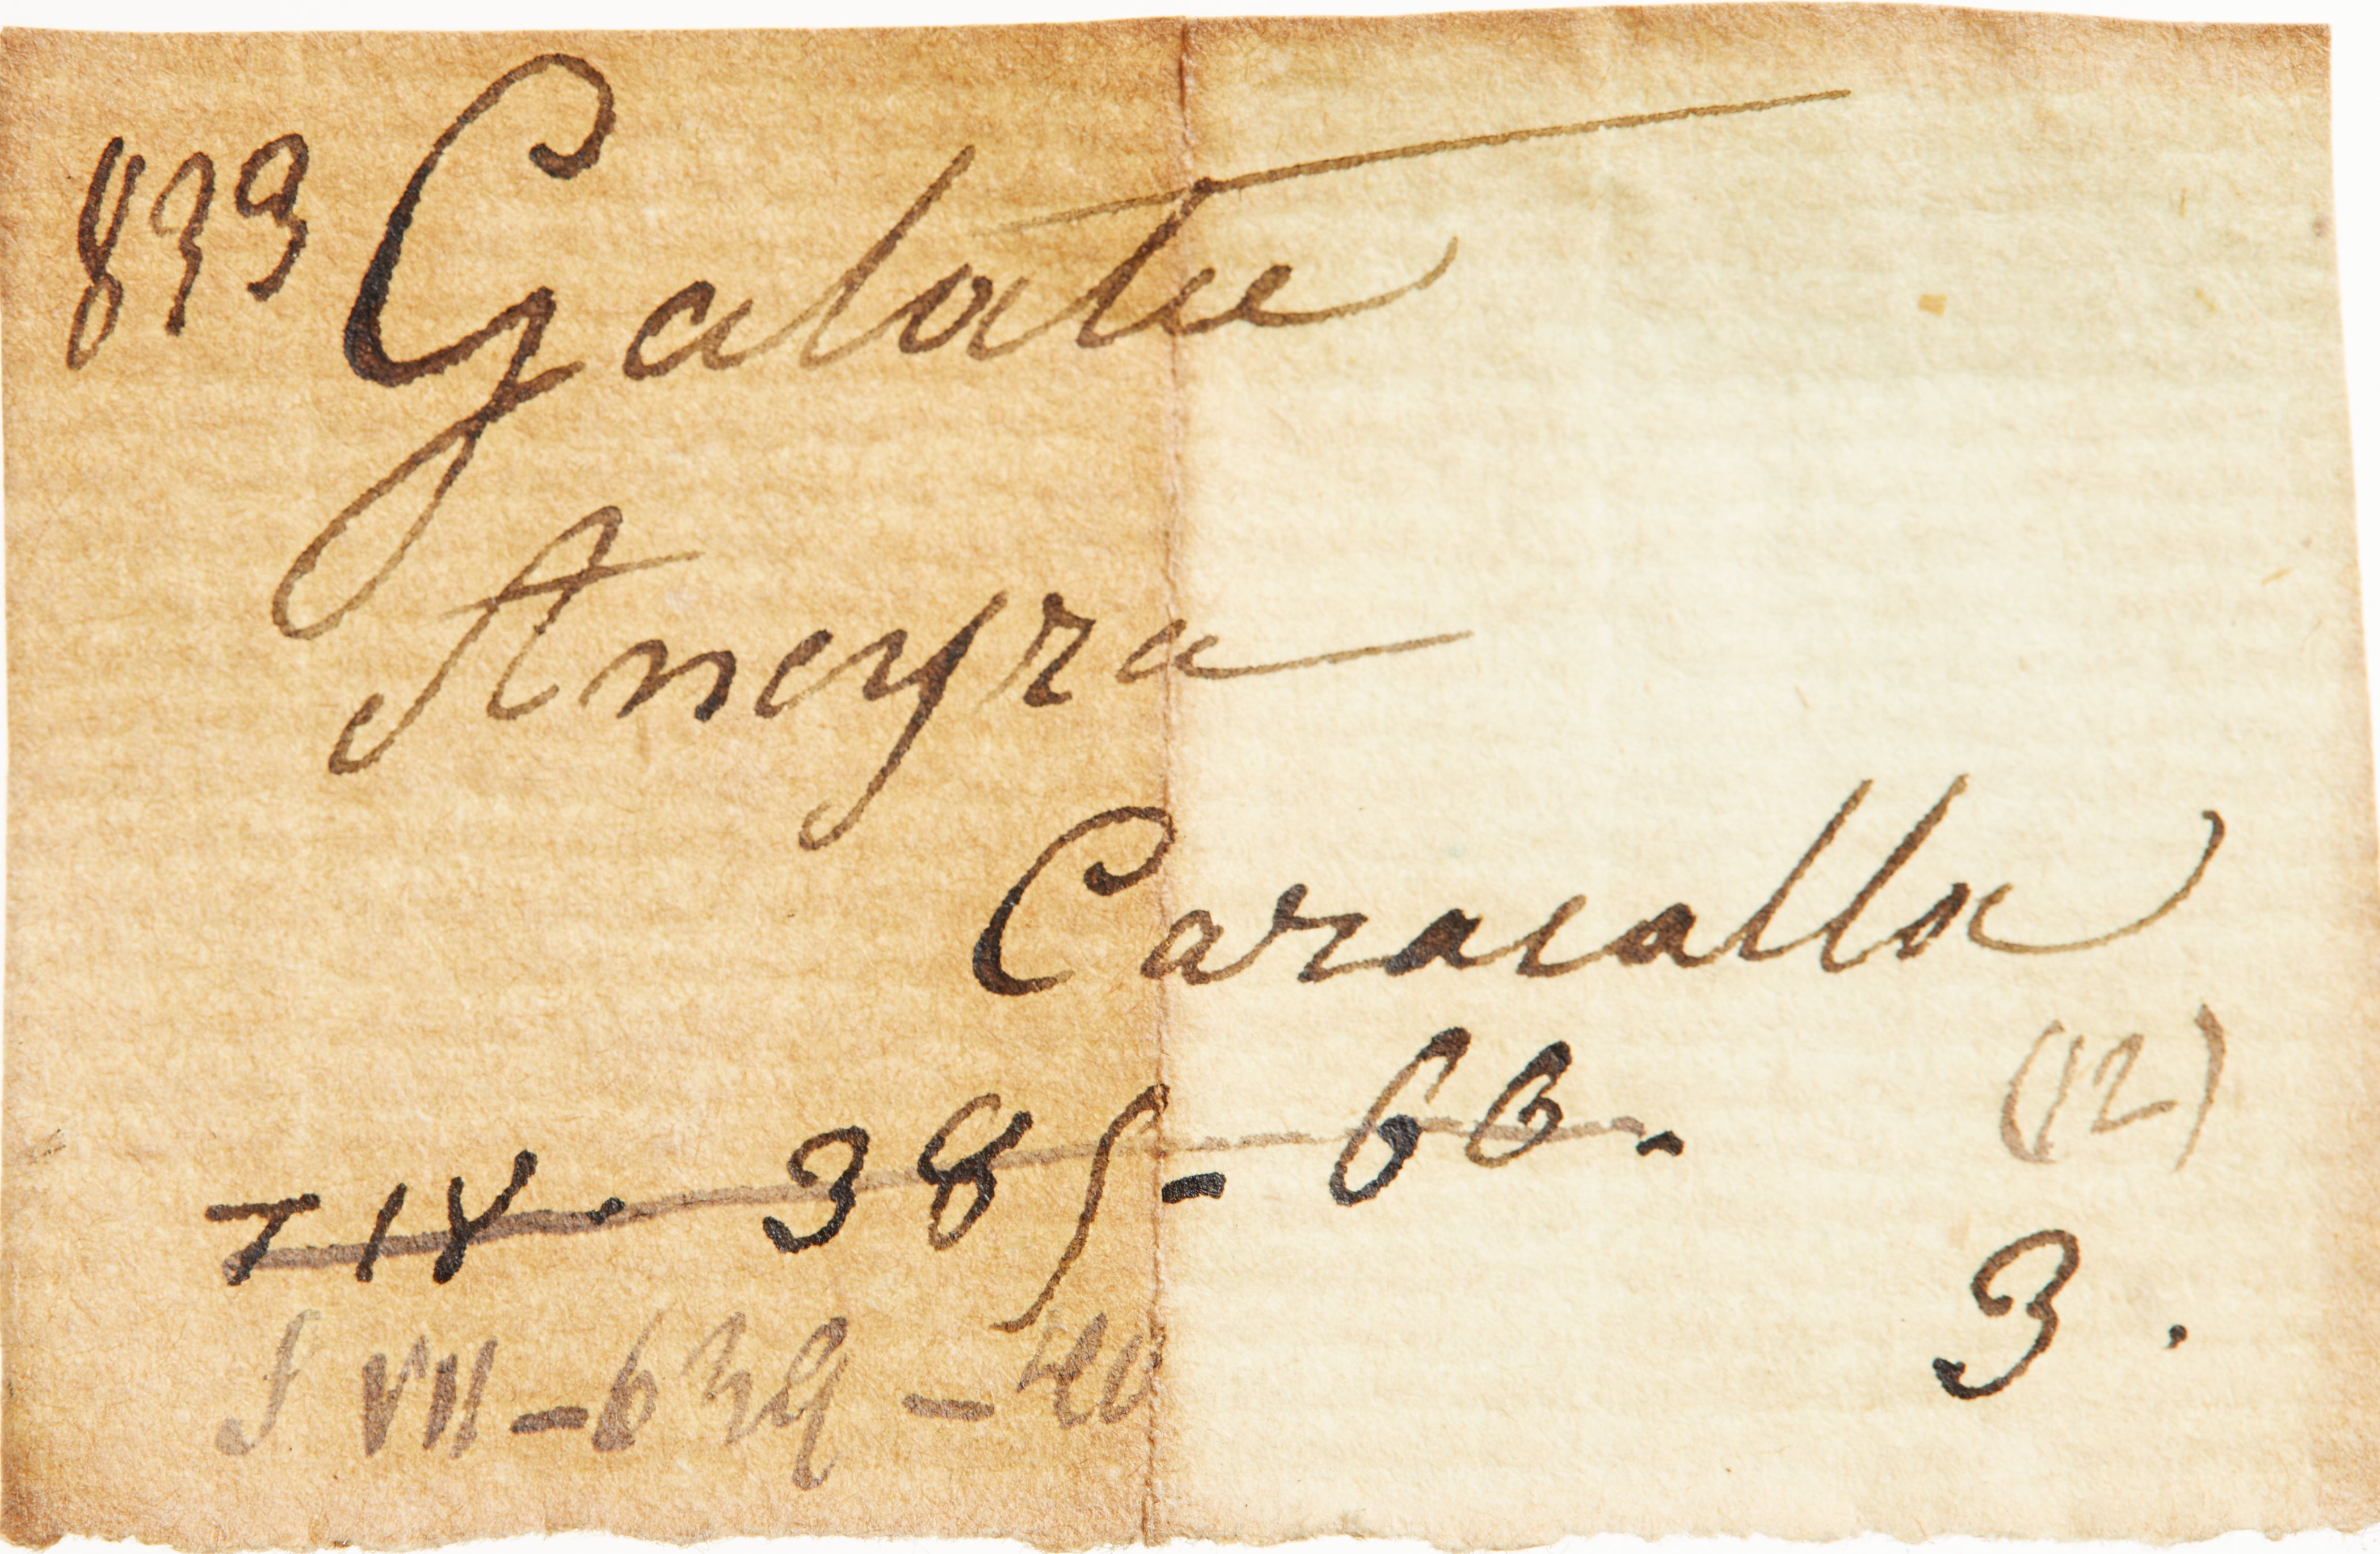 833 Galatie
Ancyra
Caracalla
T IV. 385 - 66. (12)
S VII - 639 -
3.